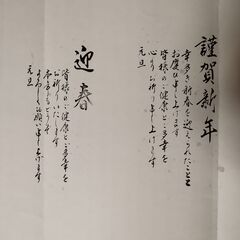 謹賀新年
幸多き新春を迎えられたことと
お慶び申し上げます
皆様のご健康とご多幸を
心よりお祈り申し上げます
元旦
迎春
皆様のご健康とご多幸を
お祈りいたします
本年もどうぞ
よろしくお願い申し上げます
元旦